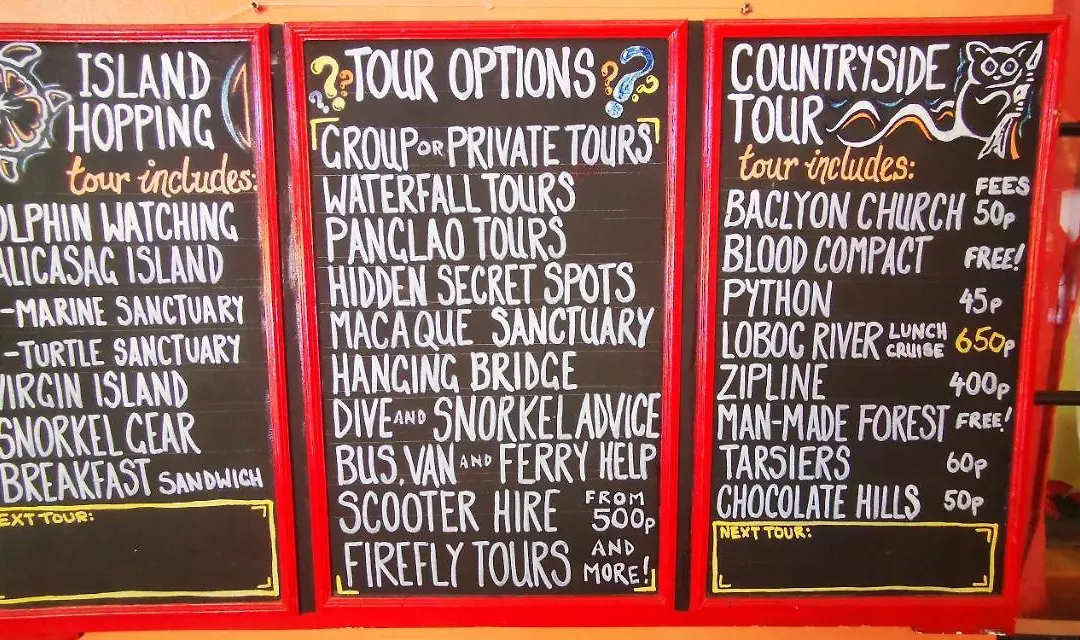 ISLAND
HOPPING
tour includes:
OLPHIN WATCHING
ALICASAG ISLAND
-MARINE SANCTUARY
-TURTLE SANCTUARY
VIRGIN ISLAND
SNORKEL GEAR
BREAKFAST SANDWICH
EXT TOUR:
??TOUR OPTIONS??
GROUP OR PRIVATE TOURS
WATERFALL TOURS
PANGLAO TOURS
HIDDEN SECRET SPOTS
MACAQUE SANCTUARY
HANGING BRIDGE
DIVE AND SNORKEL ADVICE
BUS, VAN AND FERRY HELP
SCOOTER HIRE FROM 500p
FIREFLY TOURS AND MORE!
COUNTRYSIDE
TOUR
tour includes:
FEES
BACLYON CHURCH 50p
BLOOD COMPACT FREE!
PYTHON 45p
LOBOC RIVER LUNCH CRUISE 650p
ZIPLINE 400p
MAN-MADE FOREST FREE!
TARSIERS 60p
CHOCOLATE HILLS 50p
NEXT TOUR: